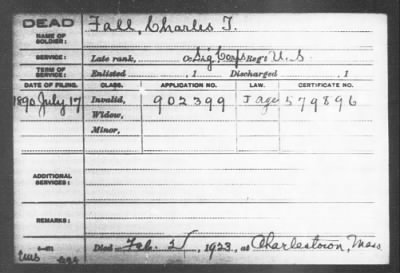 DEAD
NAME OF SOLDIER: Fall, Charles T.
SERVICE: Late rank, Co. Sig. Corps Reg't U.S.
TERM OF SERVICE: Enlisted , 1 Discharged , 1
DATE OF FILING. CLASS. APPLICATION NO. LAW. CERTIFICATE NO.
1890 July 17 Invalid, 902399 J age 579896
Widow,
Minor,
ADDITIONAL SERVICES:
REMARKS:
Died Feb. 21, 1923, at Charlestown, Mass